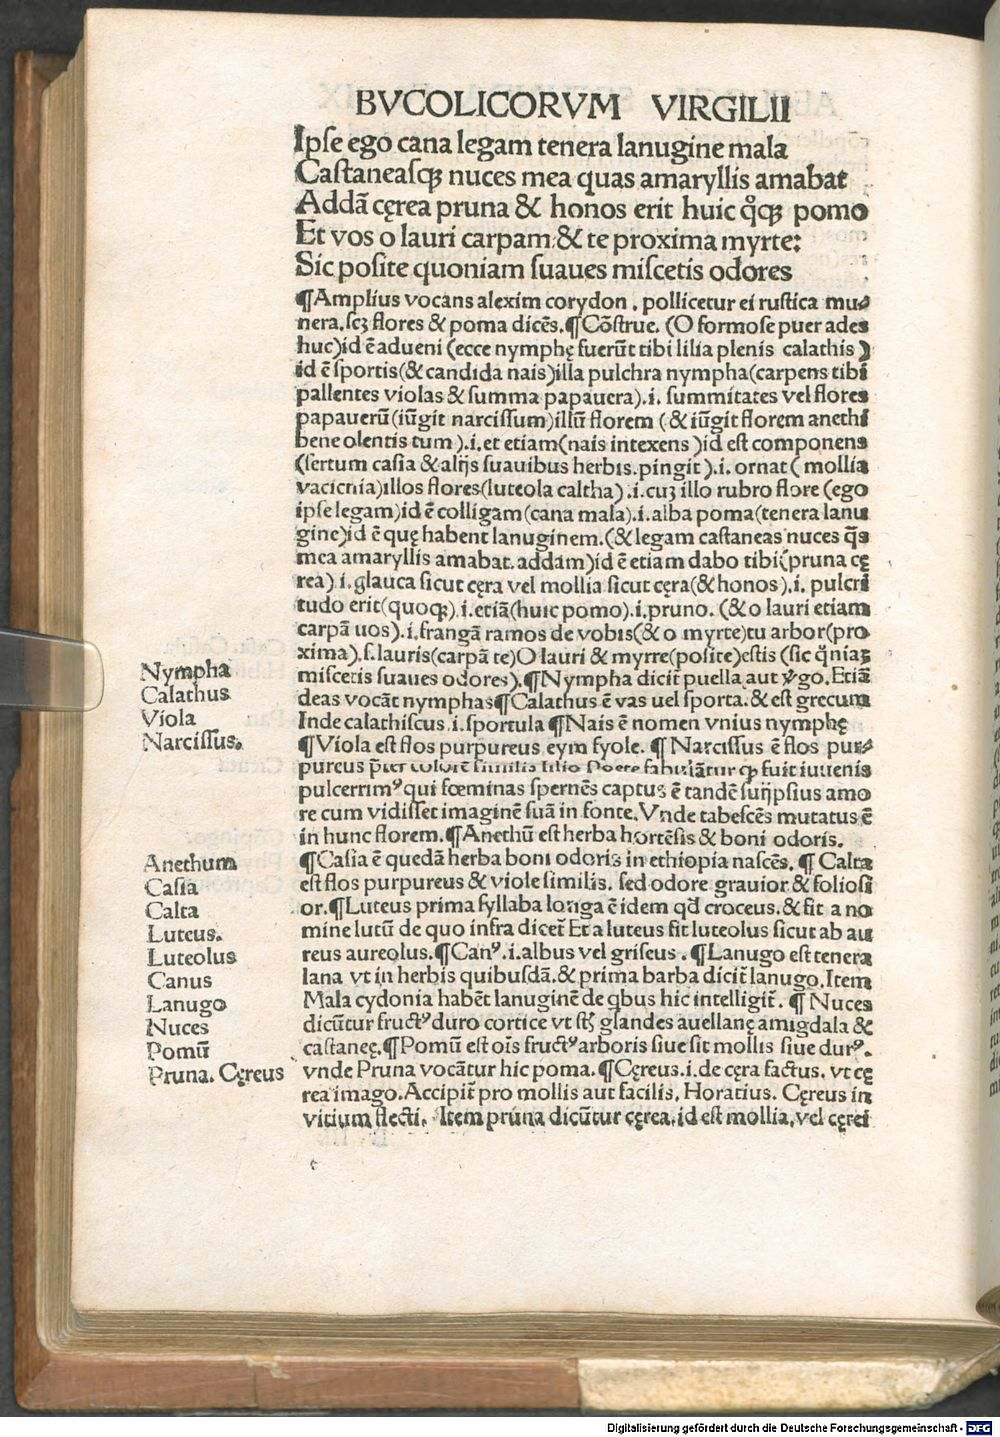 BVCOLICORVM VIRGILII
Ipse ego cana legam tenera lanugine mala
Castaneasqꝫ nuces mea quas amaryllis amabat
Addã cęrea pruna & honos erit huic qͦqꝫ pomo
Et vos o lauri carpam: & te proxima myrte:
Sic posite quoniam suaues miscetis odores
¶Amplius vocans alexim corydon . pollicetur ei rustica mu⸗
nera. scꝫ flores & poma dicẽs. ¶Cõstrue. (O formose puer ades
huc) id ẽ adueni (ecce nymphę fuerũt tibi lilia plenis calathis )
id ẽ sportis (& candida nais) illa pulchra nympha (carpens tibi
pallentes violas & summa papauera) .i. summitates vel flores
papauerũ (iũgit narcissum) illũ florem ( & iũgit florem anethi
bene olentis tum ) .i. et etiam (nais intexens ) id est componens
(sertum casia & alijs suauibus herbis. pingit ) .i. ornat ( mollia
vaccinia) illos flores (luteola caltha) .i. cuꝫ illo rubro flore (ego
ipse legam) id ẽ colligam (cana mala) .i. alba poma (tenera lanu
gine) id ẽ quę habent lanuginem. (& legam castaneas nuces q̃s
mea amaryllis amabat. addam) id ẽ etiam dabo tibi (pruna cę
rea) .i. glauca sicut cęra vel mollia sicut cęra (& honos) .i. pulcri
tudo erit (quoqꝫ) .i. etiã (huic pomo) .i. pruno. (& o lauri etiam
carpã uos) .i. frangã ramos de vobis (& o myrte) tu arbor (pro
xima) .s. lauris (carpã te) O lauri & myrre (posite) estis (sic qm̃iaꝫ
miscetis suaues odores). ¶Nympha dicit puella aut v̾go. Etiã
deas vocãt nymphas ¶Calathus ẽ vas uel sporta. & est grecum
Nympha
Inde calathiscus .i. sportula ¶Nais ẽ nomen vnius nymphę
Calathus
¶Viola est flos purpureus eym fyole. ¶ Narcissus ẽ flos pur⸗
Viola
pureus p̃ter colorẽ similis lilio Poete fabulãtur qꝫ fuit iuuenis
Narcissus.
pulcerrimꝰ qui fœminas spernẽs captus ẽ tandẽ sui ipsius amo
re cum vidisset imaginẽ suã in fonte. Vnde tabescẽs mutatus ẽ
in hunc florem. ¶Anethũ est herba hortẽsis & boni odoris.
¶Casia ẽ quedã herba boni odoris in ethiopia nascẽs. ¶ Calta
Anethum
est flos purpureus & viole similis. sed odore grauior & foliosi
Casia
or. ¶Luteus prima syllaba longa ẽ idem qd̃ croceus. & fit a no
Calta
mine lutũ de quo infra dicet̃ Et a luteus fit luteolus sicut ab au
Luteus.
reus aureolus. ¶Canꝰ .i. albus vel griseus . ¶Lanugo est tenera
Luteolus
lana vt in herbis quibusdã. & prima barba dicit̃ lanugo. Item
Canus
Mala cydonia habẽt lanuginẽ de q̇bus hic intelligit̃. ¶ Nuces
Lanugo
dicũtur fructꝰ duro cortice vt st̃ glandes auellanę amigdala &
Nuces
castaneę. ¶Pomũ est oĩs fructꝰ arboris siue sit mollis siue durꝰ.
Pomũ
vnde Pruna vocãtur hic poma. ¶Cęreus .i. de cęra factus. vt cę
Pruna. Cęreus
rea imago. Accipit̃ pro mollis aut facilis. Horatius. Cęreus in
vitium flecti. Item pruna dicũtur cęrea. id est mollia, vel cęrei
Digitalisierung gefördert durch die Deutsche Forschungsgemeinschaft - DFG